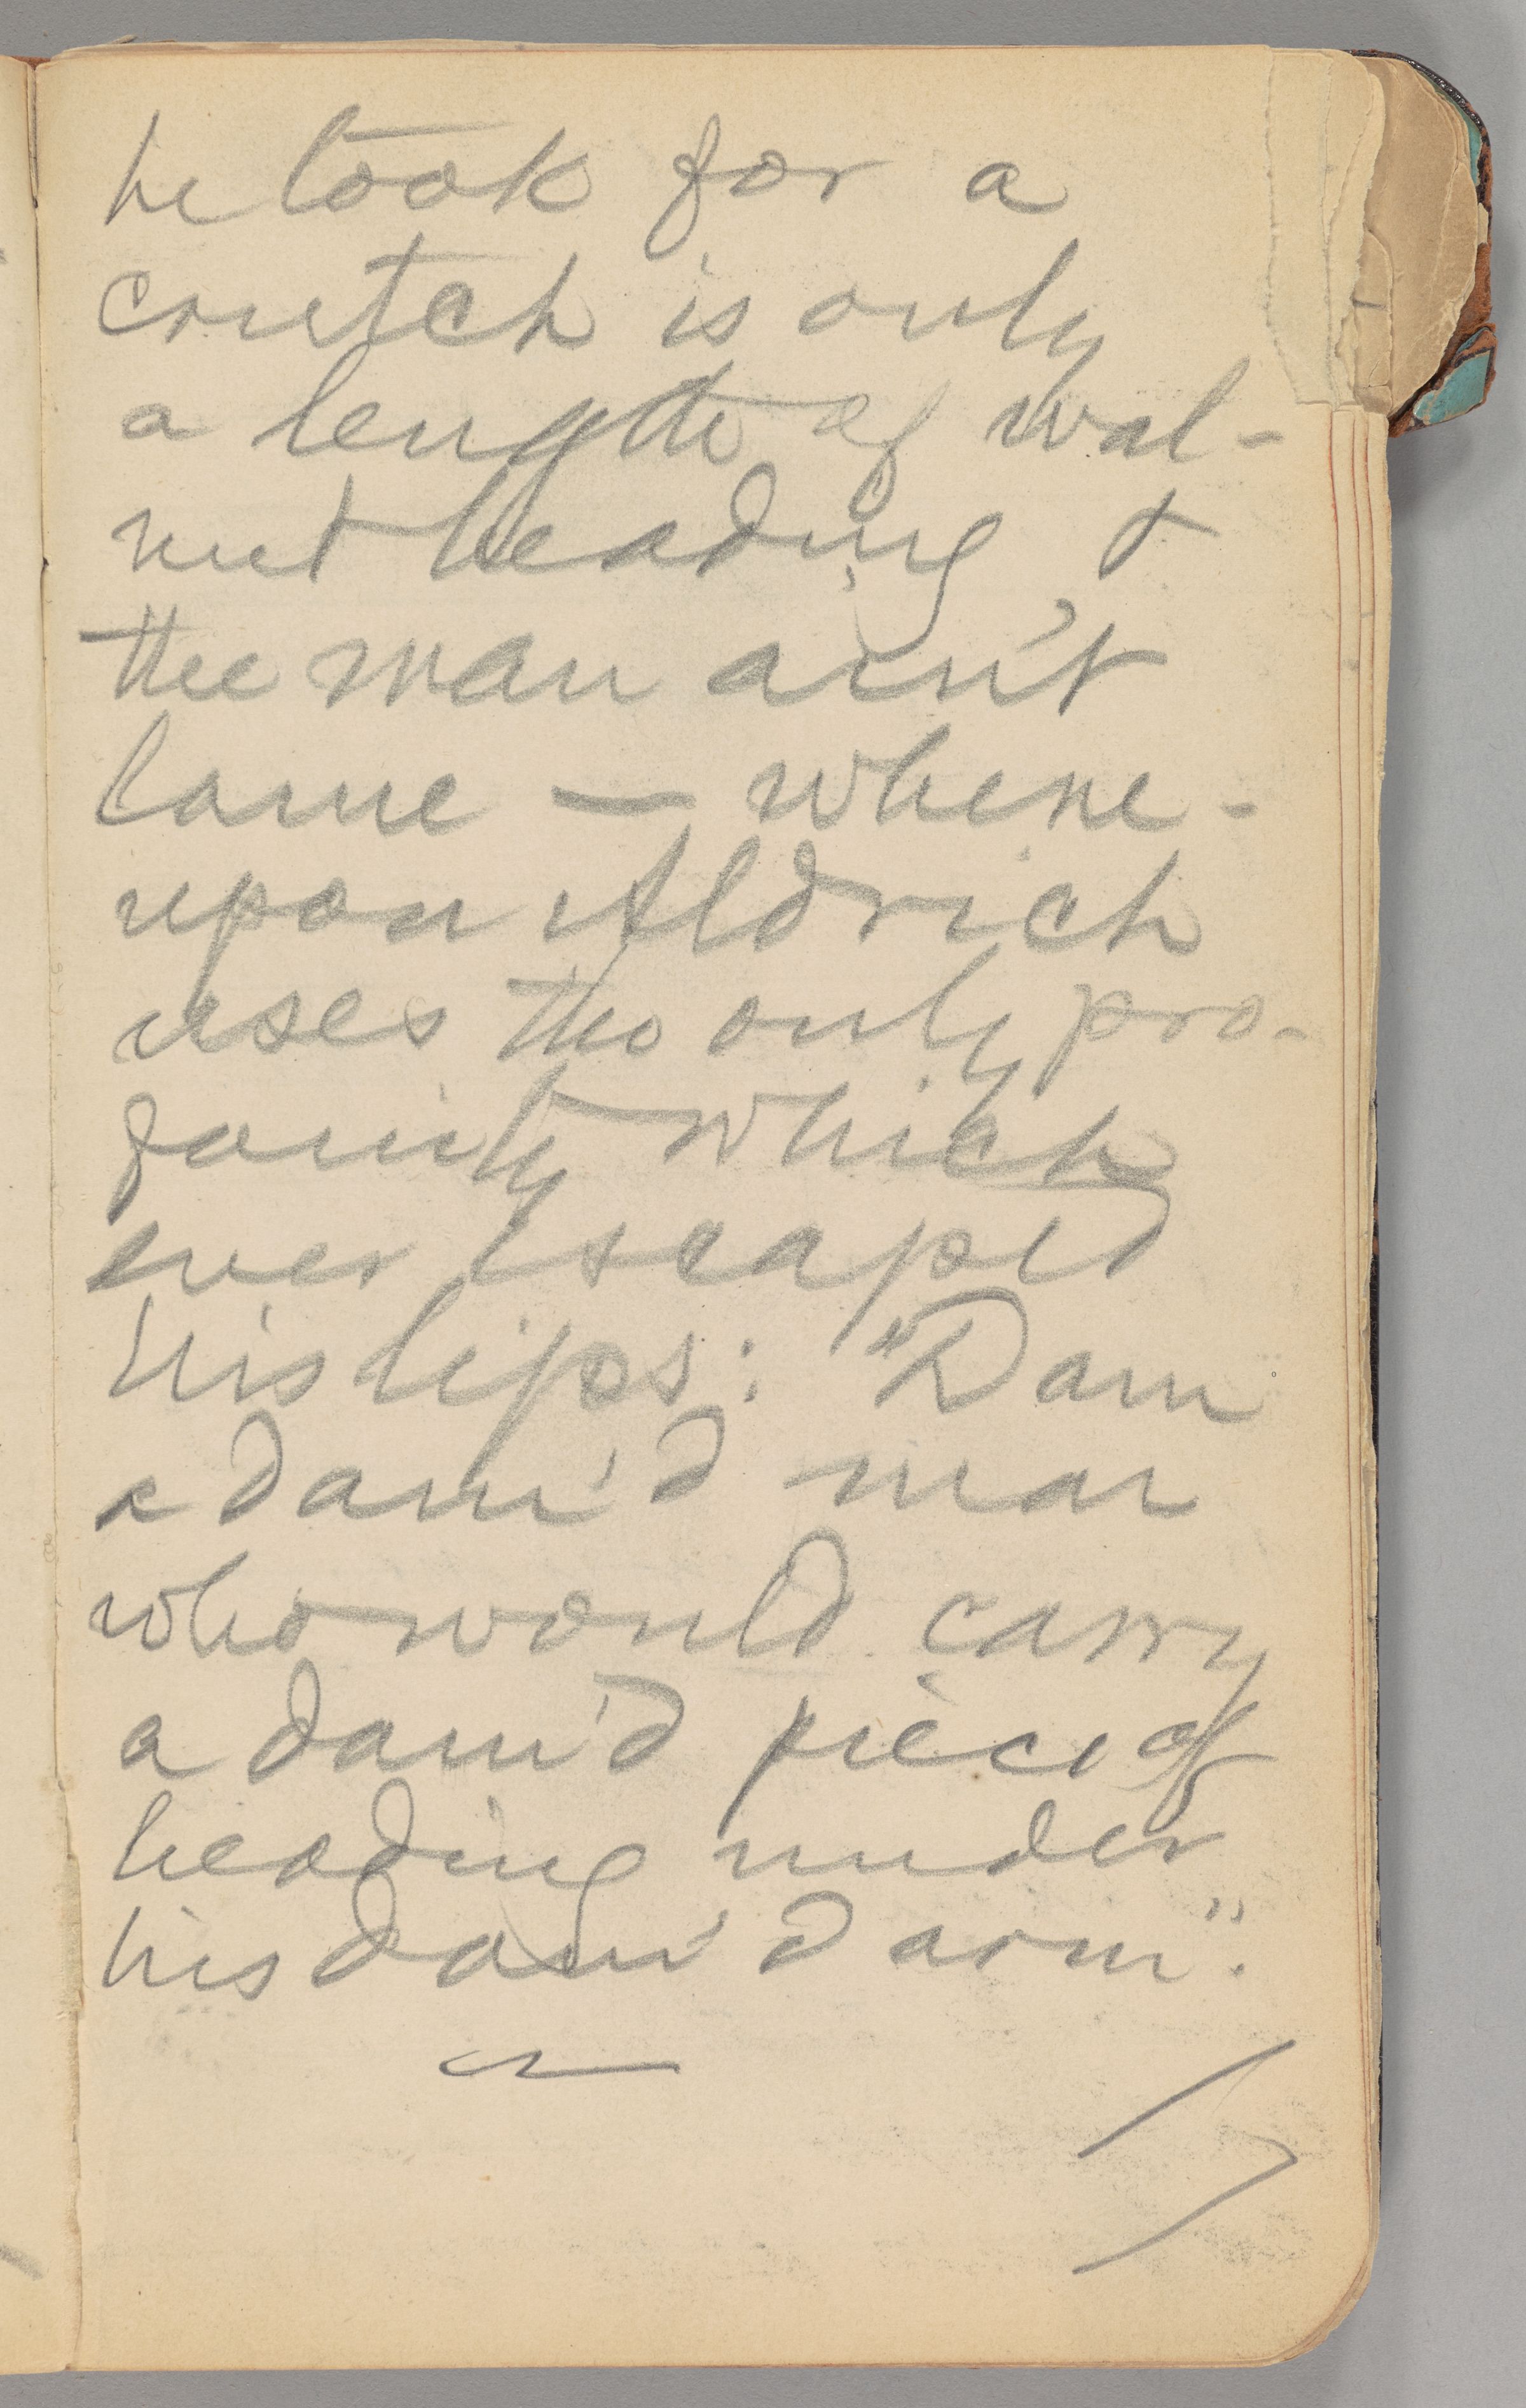 he took for a
crutch is only
a length of wal-
nut beading &
the man ain't
lame — where-
upon Aldrich
uses the only pro-
fanity which
ever escaped
his lips: "Dam
a dam'd man
who would carry
a dam'd piece of
beading under
his dam'd arm".